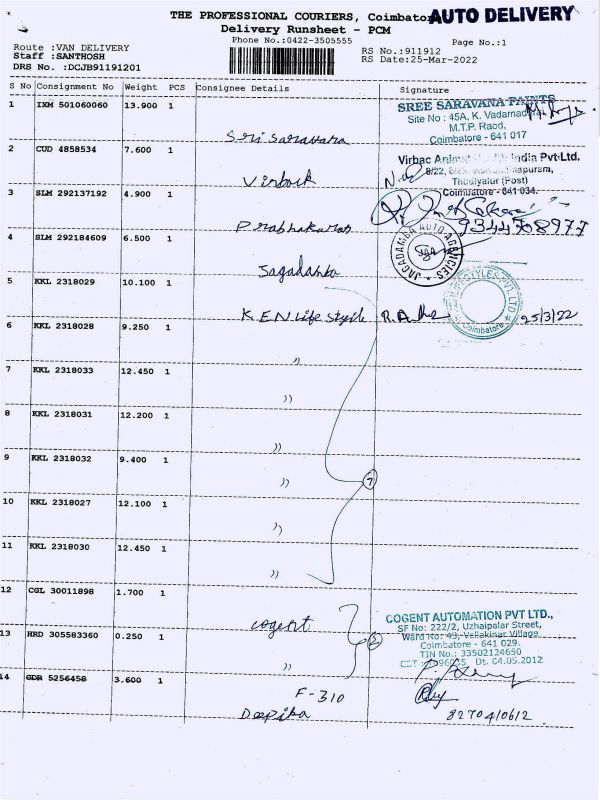 THE PROFESSIONAL COURIERS, Coimbator AUTO DELIVERY
Delivery Runsheet - PCM
Phone No.:0422-3505555
Page No.:1
Route :VAN DELIVERY
Staff :SANTHOSH
DRS No. :DCJB91191201
RS No.:911912
RS Date:25-Mar-2022
S No Consignment No Weight PCS Consignee Details Signature
1 IXM 501060060 13.900 1
Sri Saravana
SREE SARAVANA PAINTS
Site No : 45A, K. Vadamadurai
M.T.P. Raod,
Coimbatore - 641 017
2 CUD 4858534 7.600 1
Virback
Virbac Animal Health India Pvt.Ltd.
Thudiyalur (Post)
Coimbatore - 641 034.
3 SLM 292137192 4.900 1
Prabhakaran
9344768977
4 SLM 292184609 6.500 1
Jagadamba
JAGADAMBA AUTO AGENCIES
JAA
5 KKL 2318029 10.100 1
K.E.N Life Style
LIFESTYLES PVT. LTD
Coimbatore
25/3/22
6 KKL 2318028 9.250 1
"
7 KKL 2318033 12.450 1
"
8 KKL 2318031 12.200 1
"
9 KKL 2318032 9.400 1
"
7
10 KKL 2318027 12.100 1
"
11 KKL 2318030 12.450 1
"
12 CGL 30011898 1.700 1
cogent
COGENT AUTOMATION PVT LTD.,
SF No: 222/2, Uzhaipalar Street,
Ward No: 43, Vellakinar Village
Coimbatore - 641 029.
TIN No.: 33502124650
Dt. 04.05.2012
13 HRD 305583360 0.250 1
"
2
14 GDR 5256458 3.600 1
F-310
Deepika
8270410612